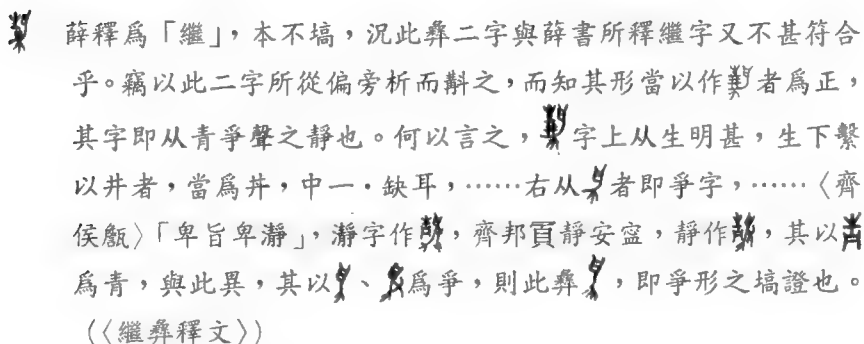 薛釋爲「繼」，本不塙，況此彝二字與薛書所釋繼字又不甚符合
乎。竊以此二字所從偏旁析而斠之，而知其形當以作者爲正，
其字即从青爭聲之靜也。何以言之，字上从生明甚，生下繫
以井者，當爲丼，中一・缺耳，……右从者即爭字，……〈齊
侯甔〉「卑旨卑瀞」，瀞字作，齊邦𩑋靜安寍，靜作，其以
爲青，與此異，其以、爲爭，則此彝，即爭形之塙證也。
（〈繼彝釋文〉）